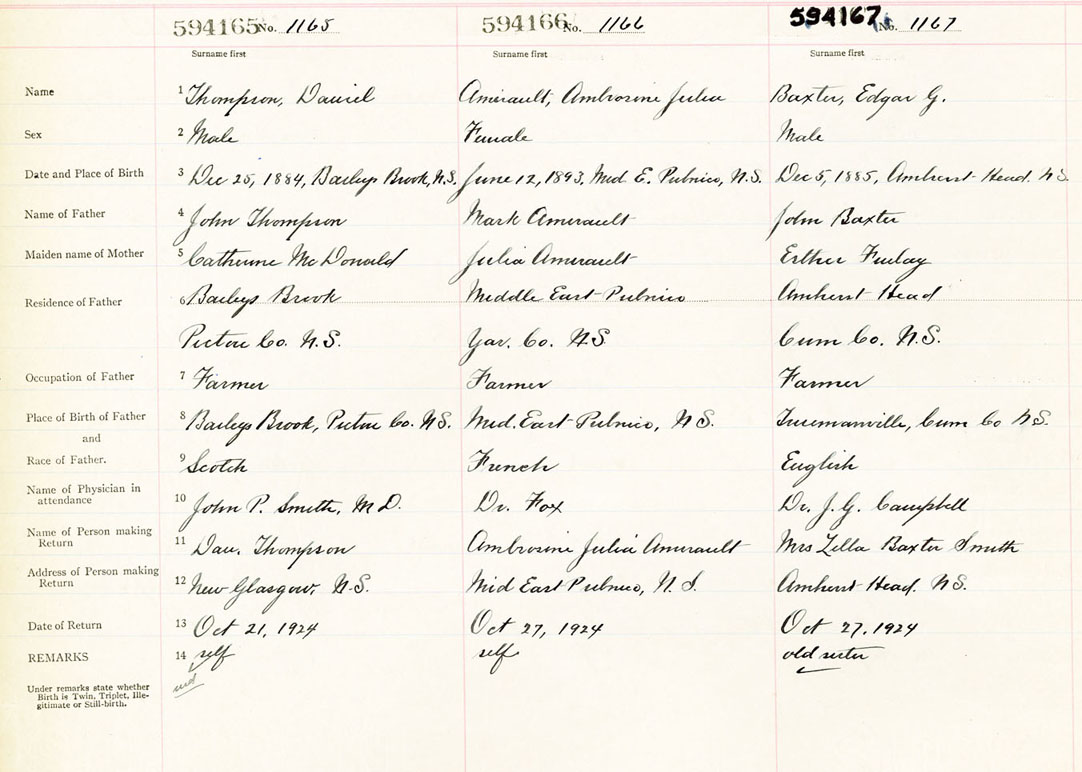 594165 No. 1165 594166 No. 1166 594167 No. 1167
Surname first Surname first Surname first
Name 1 Thompson, Daniel Amirault, Ambrosine Julia Baxter, Edgar G.
Sex 2 Male Female Male
Date and Place of Birth 3 Dec 25, 1884, Baileys Brook, N.S. June 12, 1893, Mid E. Pubnico, N.S. Dec 5, 1885, Amherst Head. N S.
Name of Father 4 John Thompson Mark Amirault John Baxter
Maiden name of Mother 5 Catherine McDonald Julia Amirault Esther Finlay
Residence of Father 6 Baileys Brook Middle East Pubnico Amherst Head
Pictou Co. N.S. Yar. Co. N.S Cum Co. N.S.
Occupation of Father 7 Farmer Farmer Farmer
Place of Birth of Father 8 Baileys Brook, Pictou Co. N.S. Mid. East Pubnico, N S. Truemanville, Cum Co N S.
and
Race of Father. 9 Scotch French English
Name of Physician in
attendance 10 John P. Smith, M D. Dr. Fox Dr. J. G. Campbell
Name of Person making
Return 11 Dan. Thompson Ambrosine Julia Amirault Mrs Zella Baxter Smith
Address of Person making
Return 12 New Glasgow, N.S. Mid East Pubnico, N. S. Amherst Head. NS.
Date of Return 13 Oct 21, 1924 Oct 27, 1924 Oct 27, 1924
REMARKS 14 self self old sister
Under remarks state whether
Birth is Twin, Triplet, Ille-
gitimate or Still-birth.